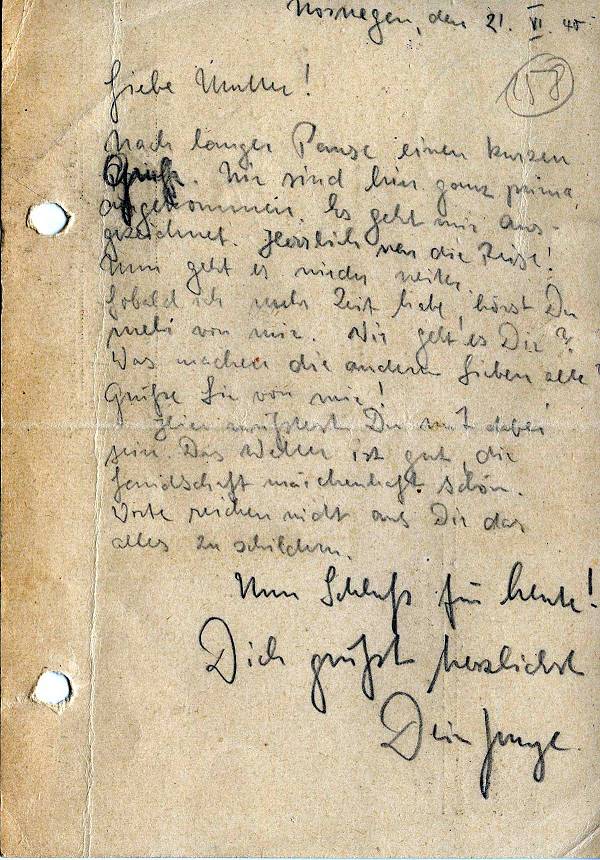 Norwegen, den 21. VI. 40
158
Liebe Mutter!
Nach langer Pause einen kurzen
Gruß. Wir sind hier ganz prima
angekommen. Es geht mir aus-
gezeichnet. Herrlich war die Reise!
Nun geht es wieder weiter.
Sobald ich mehr Zeit habe, hörst Du
mehr von mir. Wie geht es Dir?
Was machen die anderen Lieben alle?
Grüße Sie von mir!
Hier müßtest Du mit dabei
sein. Das Wetter ist gut, die
Landschaft märchenhaft schön.
Worte reichen nicht aus Dir das
alles zu schildern.
Nun Schluß für heute!
Dich grüßt herzlichst
Dein Junge.